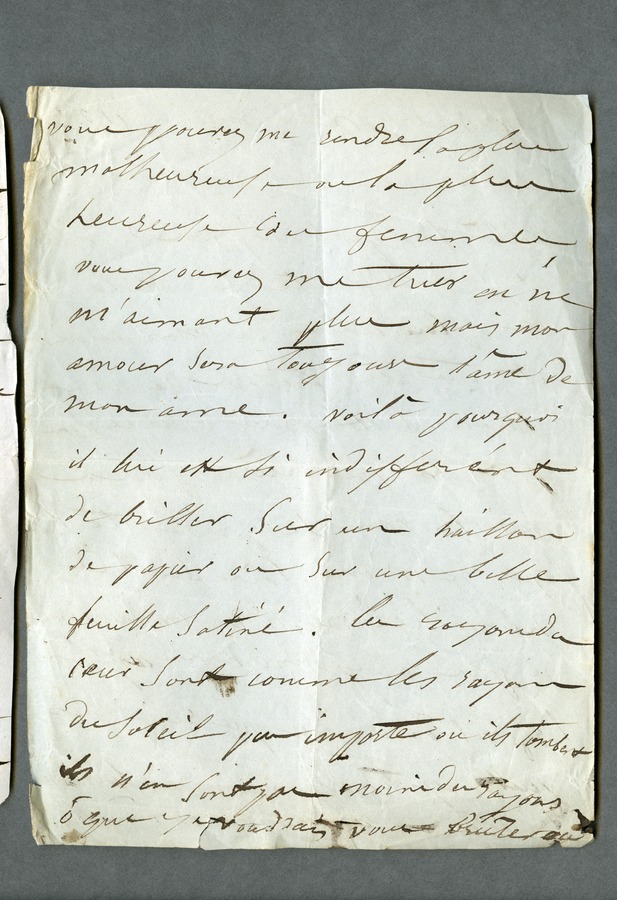 vous pouvez me rendre la plus
malheureuse ou la plus
heureuse des femmes
vous pouvez me tuer en ne
m'aimant plus mais mon
amour sera toujours l'âme de
mon âme. voilà pourquoi
il lui est si indifférent
de briller sur un haillon
de papier ou sur une belle
feuille satiné. les rayons du
cœur sont comme les rayons
du soleil qu'importe où ils tombent
ils n'en sont pas moins des rayons
ô que je voudrais vous